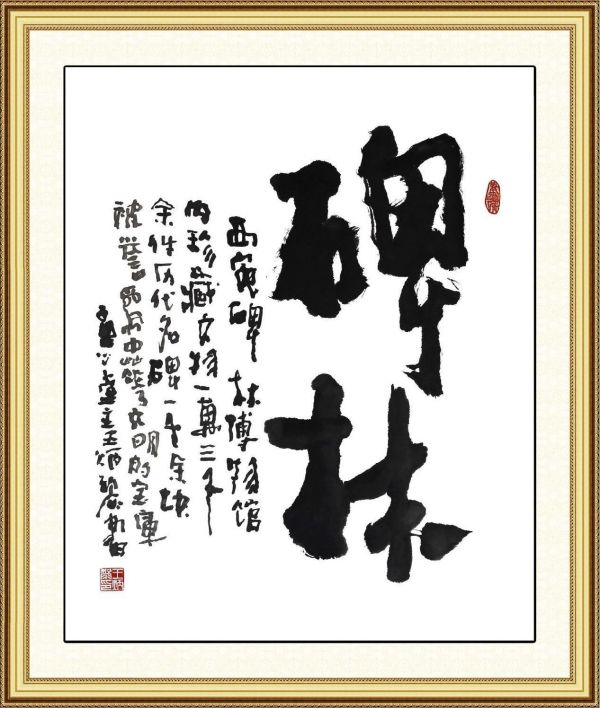 碑林
西安碑林博物馆
内珍藏文物一萬三千
余件历代名碑一千余块
被誉 中 文明的宝庫
堂主王炳